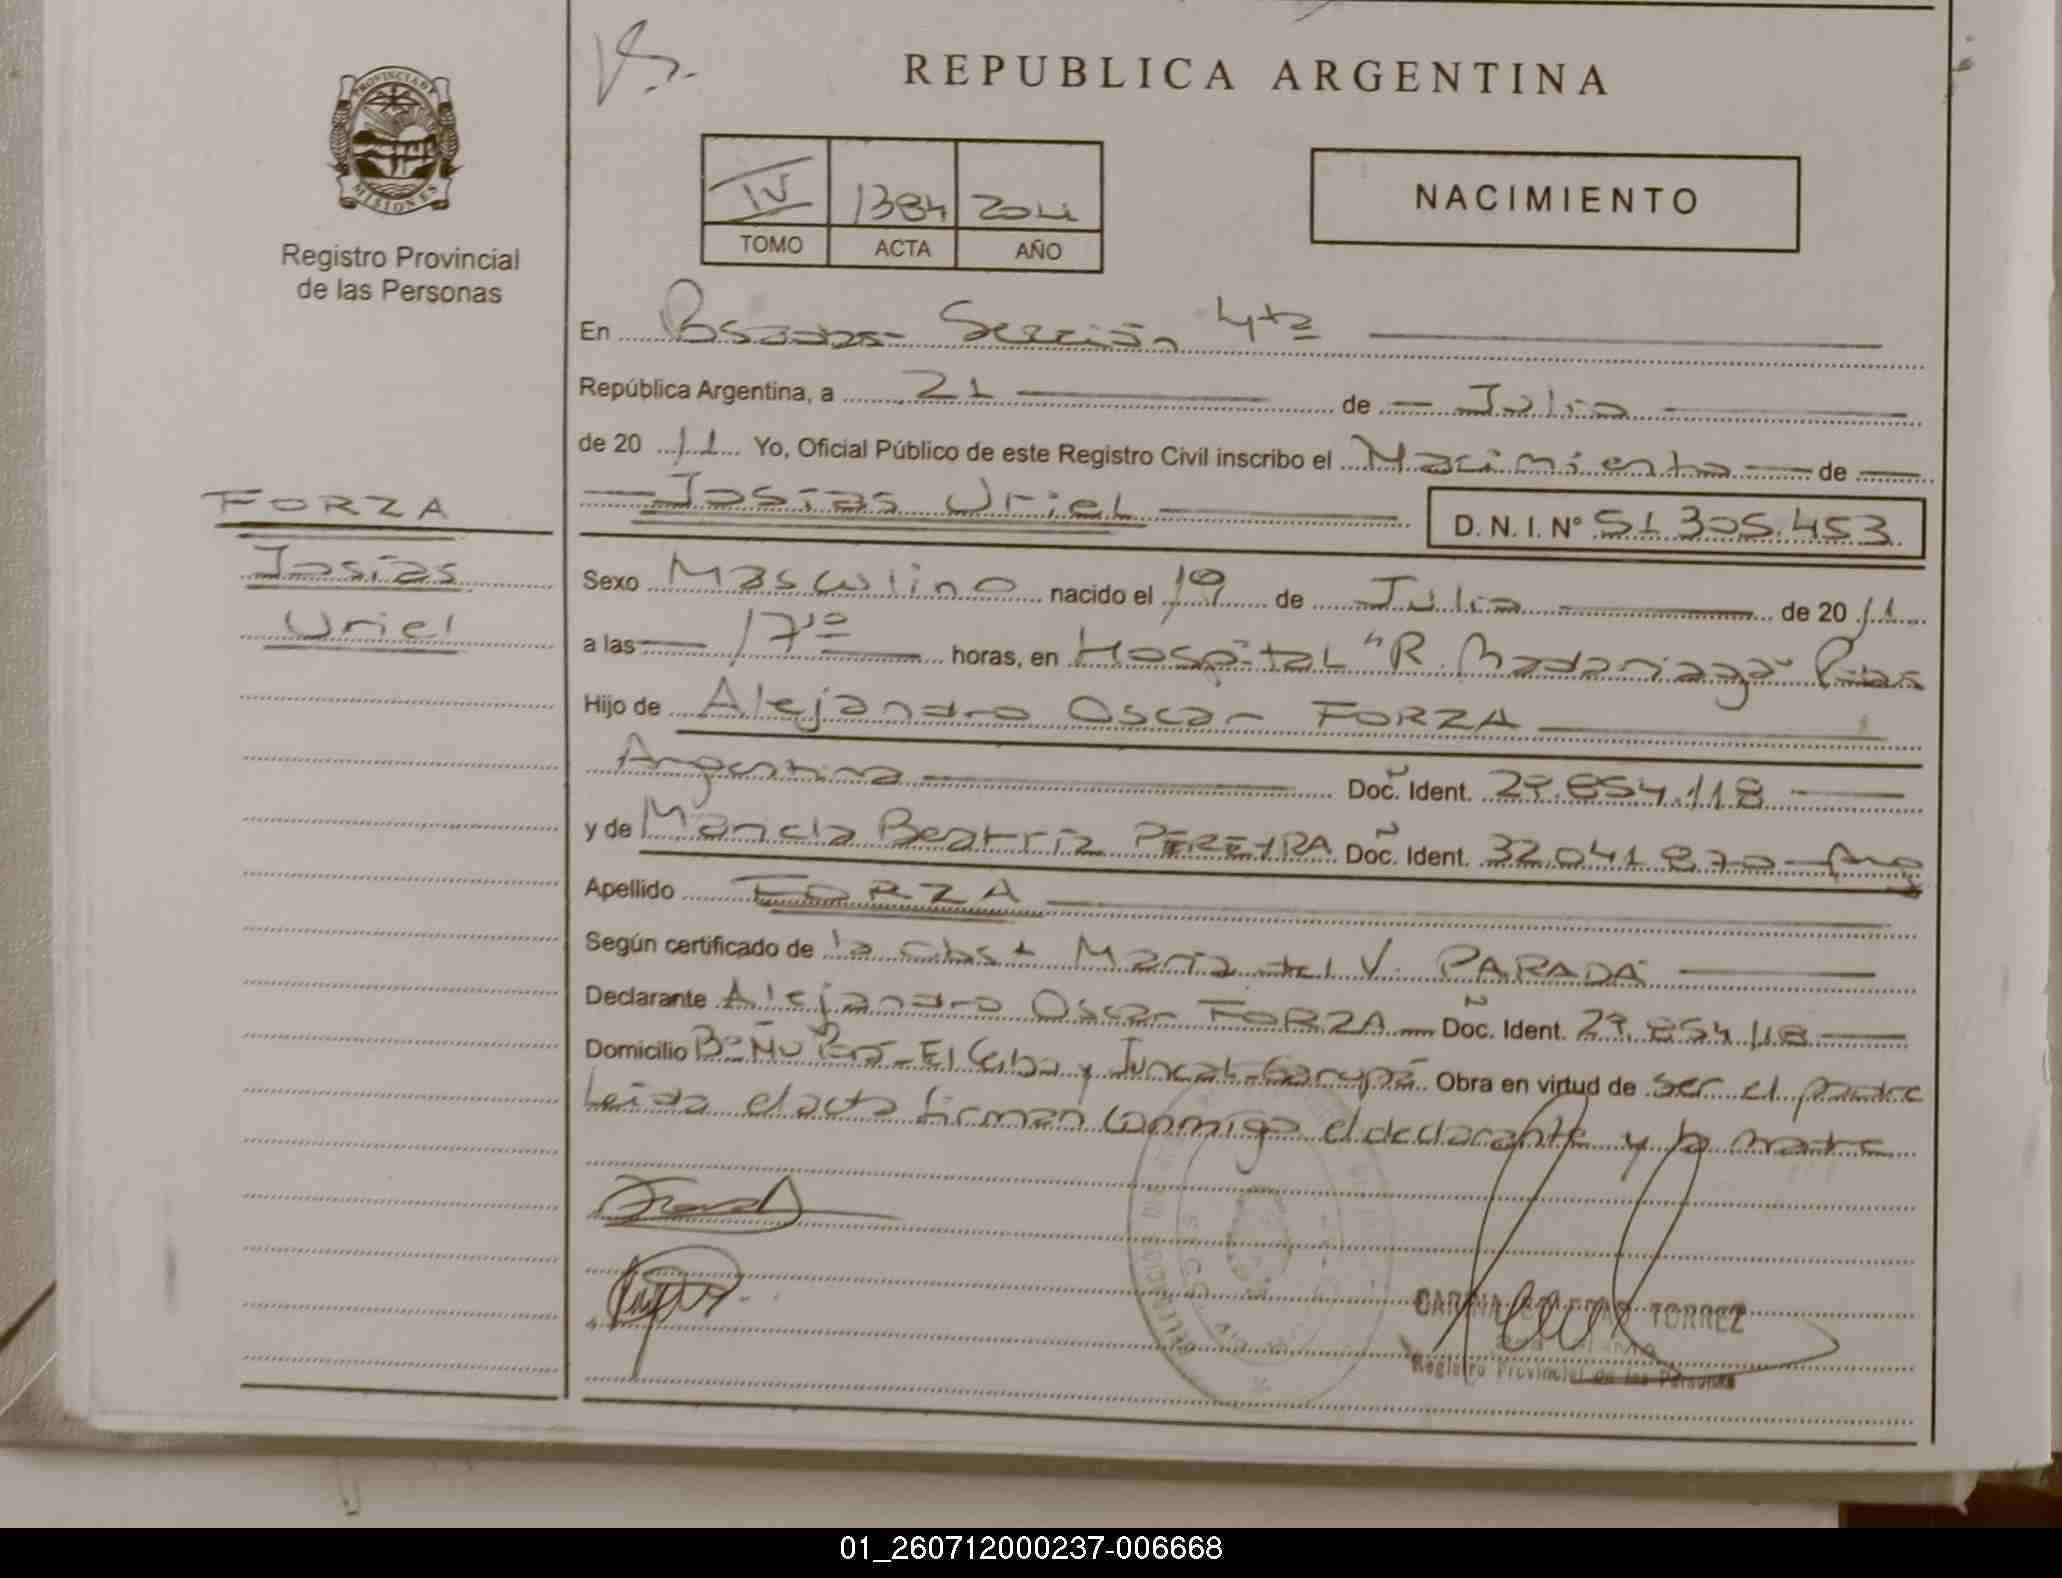 REPUBLICA ARGENTINA
PROVINCIA DE
MISIONES
Registro Provincial
de las Personas
IV 1384 2011
TOMO ACTA AÑO
NACIMIENTO
En Posadas Sección 4ta
República Argentina, a 21 de Julio
de 20 11 Yo, Oficial Público de este Registro Civil inscribo el Nacimiento de
Josías Uriel
D. N. I. N° 51.305.453
FORZA
Josías
Uriel
Sexo Masculino nacido el 19 de Julio de 20 11
a las 17 horas, en Hospital "R. Madariaga" Pdas
Hijo de Alejandro Oscar FORZA
Argentina Doc. Ident. 29.854.118
y de Beatriz PEREYRA Doc. Ident. 32.041.870 Arg
Apellido FORZA
Según certificado de la Obst María del V. PARADA
Declarante Alejandro Oscar FORZA Doc. Ident. 29.854.118
Domicilio Bº Ñu Porá - El Ceibo y Juncal - Garupá Obra en virtud de ser el padre
Leída el acta firman conmigo el declarante y la madre
TORREZ
Registro Provincial de las Personas
01_260712000237-006668